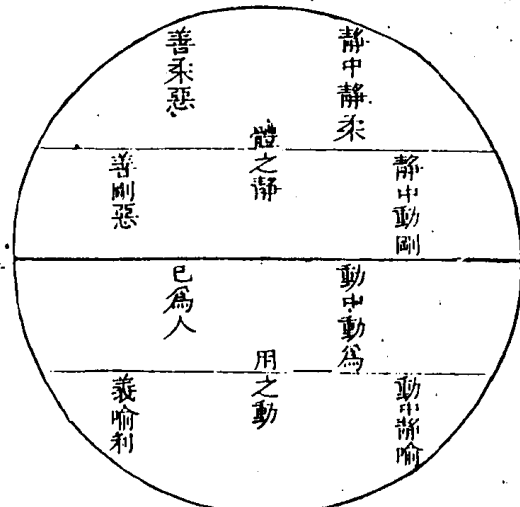 靜中靜柔
善柔惡
體之靜
靜中動剛
善剛惡
動中動為
已為人
用之動
動中靜喻
義喻利